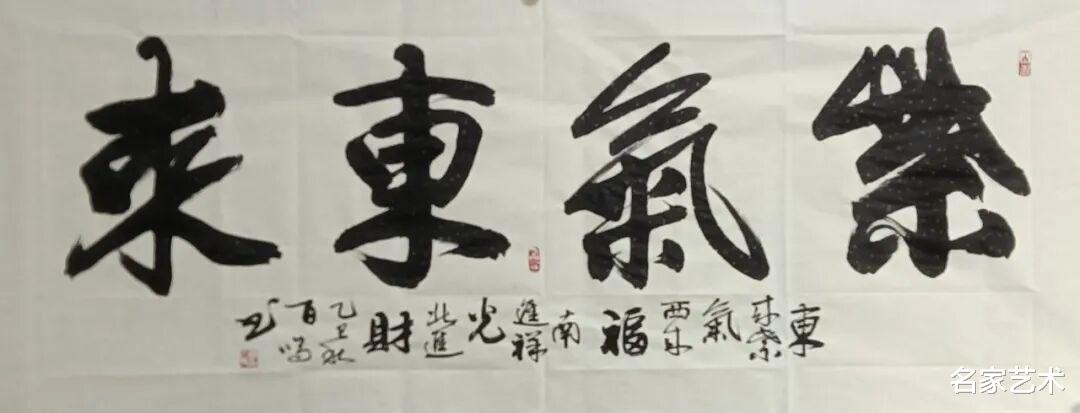 紫氣東來
東來紫氣西來福南進祥光北進財
乙巳秋百鳴书
名家艺术